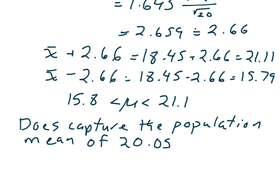 = 1.645 /√20
= 2.659 ≈ 2.66
x̄ + 2.66 = 18.45 + 2.66 = 21.11
x̄ - 2.66 = 18.45 - 2.66 = 15.79
15.8 < μ < 21.1
Does capture the population
mean of 20.05